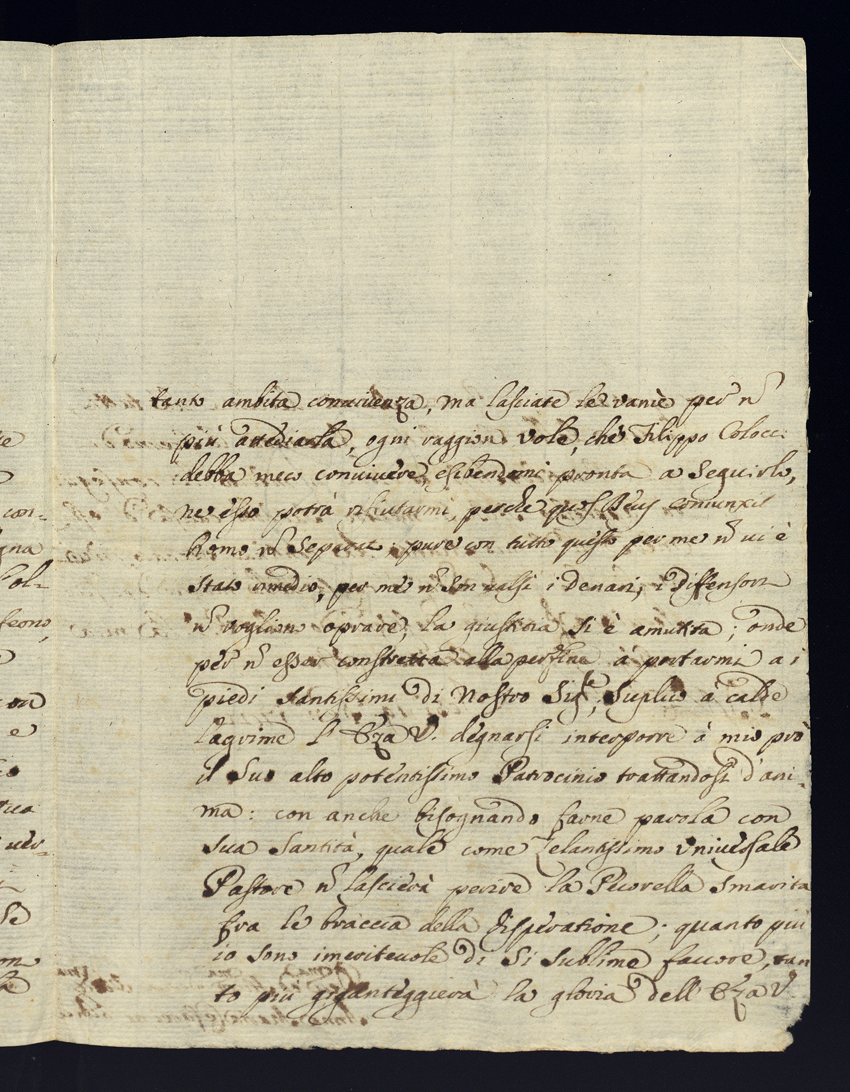 tanto ambita convivenza, ma lasciate le vanie per ñ
più attediarla, ogni raggion vole, che Filippo Colocci
debba meco convivere esibendomi pronta a Seguirlo,
ne esso potrà rifiutarmi, perche quos Deus coniunxit
homo ñ Separat; pure con tutto questo per me ñ vi è
stato rimedio, per me ñ son valsi i Denari, i Diffensori
ñ voglion oprare, la giustizia si è amutita; onde
per ñ esser constretta alla perfine à portarmi a i
piedi Santissimi di Nostro Sig.re, Suplico à calde
lagrime l' Ecza V. degnarsi interporre à mio prò
il Suo alto potentissimo Patrocinio trattandosi d'ani-
ma: con anche bisognando farne parola con
Sua Santità, quale come Zelantissimo Universale
Pastore ñ lascierà perire la Pecorella Smarita
fra le braccia della disperatione; quanto più
io sono imeritevole di Si Sublime favore, tan
to più giganteggierà la gloria dell' Ecza V.
te
con-
gna
Fol-
feono,
e
ver-
Se